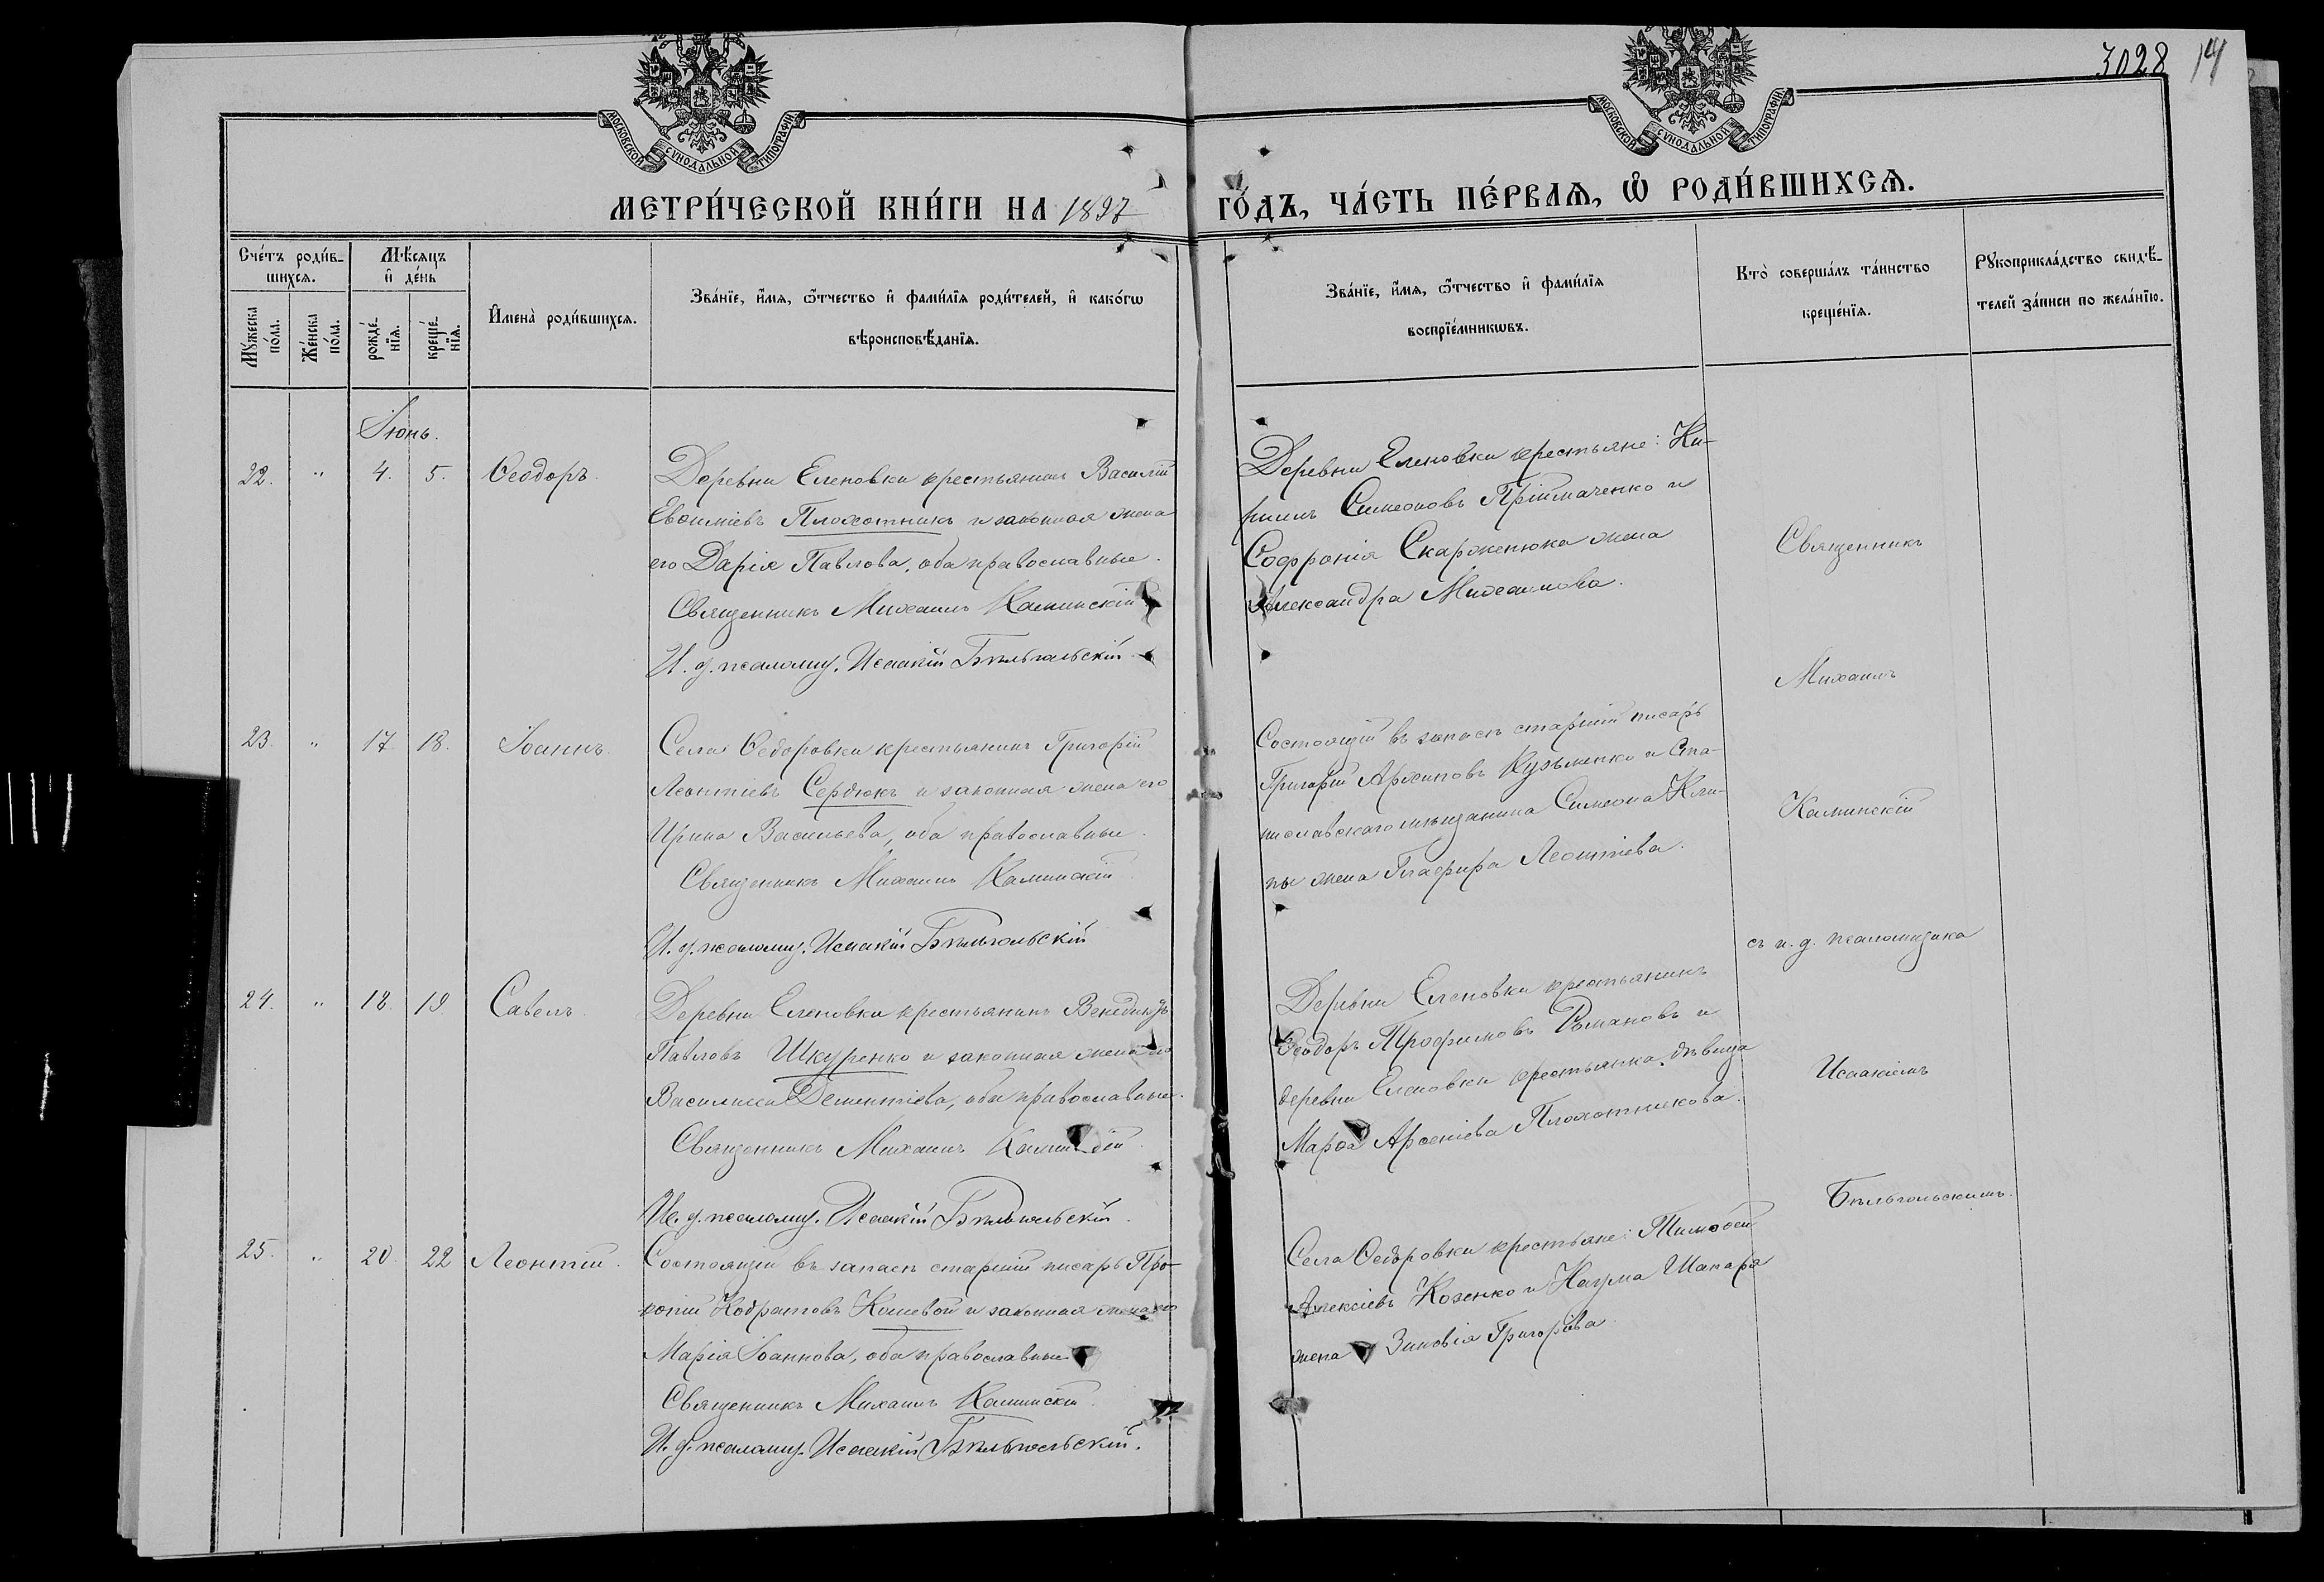 3028 14
МОСКОВСКОЙ СѴНОДАЛЬНОЙ ТИПОГРАФІИ
МОСКОВСКОЙ СѴНОДАЛЬНОЙ ТИПОГРАФІИ
МЕТРИ́ЧЕСКОЙ КНИ́ГИ НА 1897 ГО́ДЪ, ЧА́СТЬ ПЕ́РВАѦ, Ѡ҆ РОДИ́ВШИХСѦ.
Сче́тъ роди́в-
шихсѧ.
Мꙋ́жеска по́ла.
Же́нска по́ла.
Мѣ́сѧцъ
и҆ де́нь
рожде́-
нїѧ.
креще́-
нїѧ.
И҆мена̀ роди́вшихсѧ.
Зва́нїе, и҆́мѧ, ѻ҆́тчество и҆ фами́лїѧ роди́телей, и҆ како́гѡ
вѣроисповѣ́данїѧ.
Зва́нїе, и҆́мѧ, ѻ҆́тчество и҆ фами́лїѧ
воспрїе́мникѡвъ.
Кто̀ соверша́лъ та́инство
креще́нїѧ.
Рꙋкоприкла́дство свидѣ́-
телей за́писи по жела́нїю.
Іюнь.
22. " 4. 5. Ѳеодоръ.
Деревни Еленовки крестьянинъ Василій
Евѳиміевъ Плохотникъ и законная жена
его Дарія Павлова, оба православные.
Священникъ Михаилъ Каминскій
И. д. псаломщ. Исаакій Бѣльгольскій
Деревни Еленовки крестьяне: Ки-
риллъ Симеоновъ Пріймаченко и
Софронія Скарженюка жена
Александра Михаилова.
23. " 17 18. Іоаннъ.
Села Ѳедоровки крестьянинъ Григорій
Леонтіевъ Сердюкъ и законная жена его
Ирина Васильева, оба православные.
Священникъ Михаилъ Каминскій
И. д. псаломщ. Исаакій Бѣльгольскій
Состоящій въ запасѣ старшій писарь
Григорій Архиповъ Кузьменко и Ста-
ниславскаго мѣщанина Симеона Кли-
пы жена Глафира Леонтіева.
24. " 18. 19. Савелъ.
Деревни Еленовки крестьянинъ
Павловъ Шкуренко и законная жена его
Василисса Дементіева, оба православные.
Священникъ Михаилъ Каминскій
И. д. псаломщ. Исаакій Бѣльгольскій.
Деревни Еленовки крестьянинъ
Ѳеодоръ Трофимовъ Романовъ и
деревни Еленовки крестьянка, дѣвица
Марѳа Арсеніева Плохотникова.
25. " 20. 22 Леонтій.
Состоящій въ запасѣ старшій писарь Про-
копій Кодратовъ Кошевой и законная жена его
Марія Іоаннова, оба православные
Священникъ Михаилъ Каминскій.
И. д. псаломщ. Исаакій Бѣльгольскій.
Села Ѳедоровки крестьяне: Тимоѳей
Алексіевъ Козенко и Наума Шапара
жена Зиновія Григорьева.
Священникъ
Михаилъ
Каминскій
съ и. д. псаломщика
Исаакіемъ
Бѣльгольскимъ.